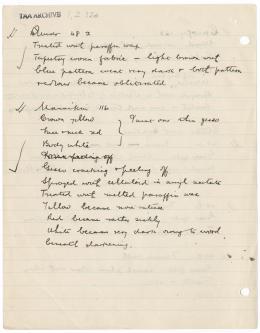 TAA ARCHIVE 1.2.32a
1) Diwan 48 z
Treated with paraffin wax
Tapestry woven fabric - light brown with
blue pattern went very dark & both pattern
became obliterated
2) Mannikin 116
Crown yellow
Face & neck red
Body white
Paint on thin gesso
Gesso cracking & peeling off
Sprayed with celluloid in amyl acetate
Treated with melted paraffin wax
Yellow became more intense
Red became rather sickly
White became very dark owing to wood
beneath darkening.